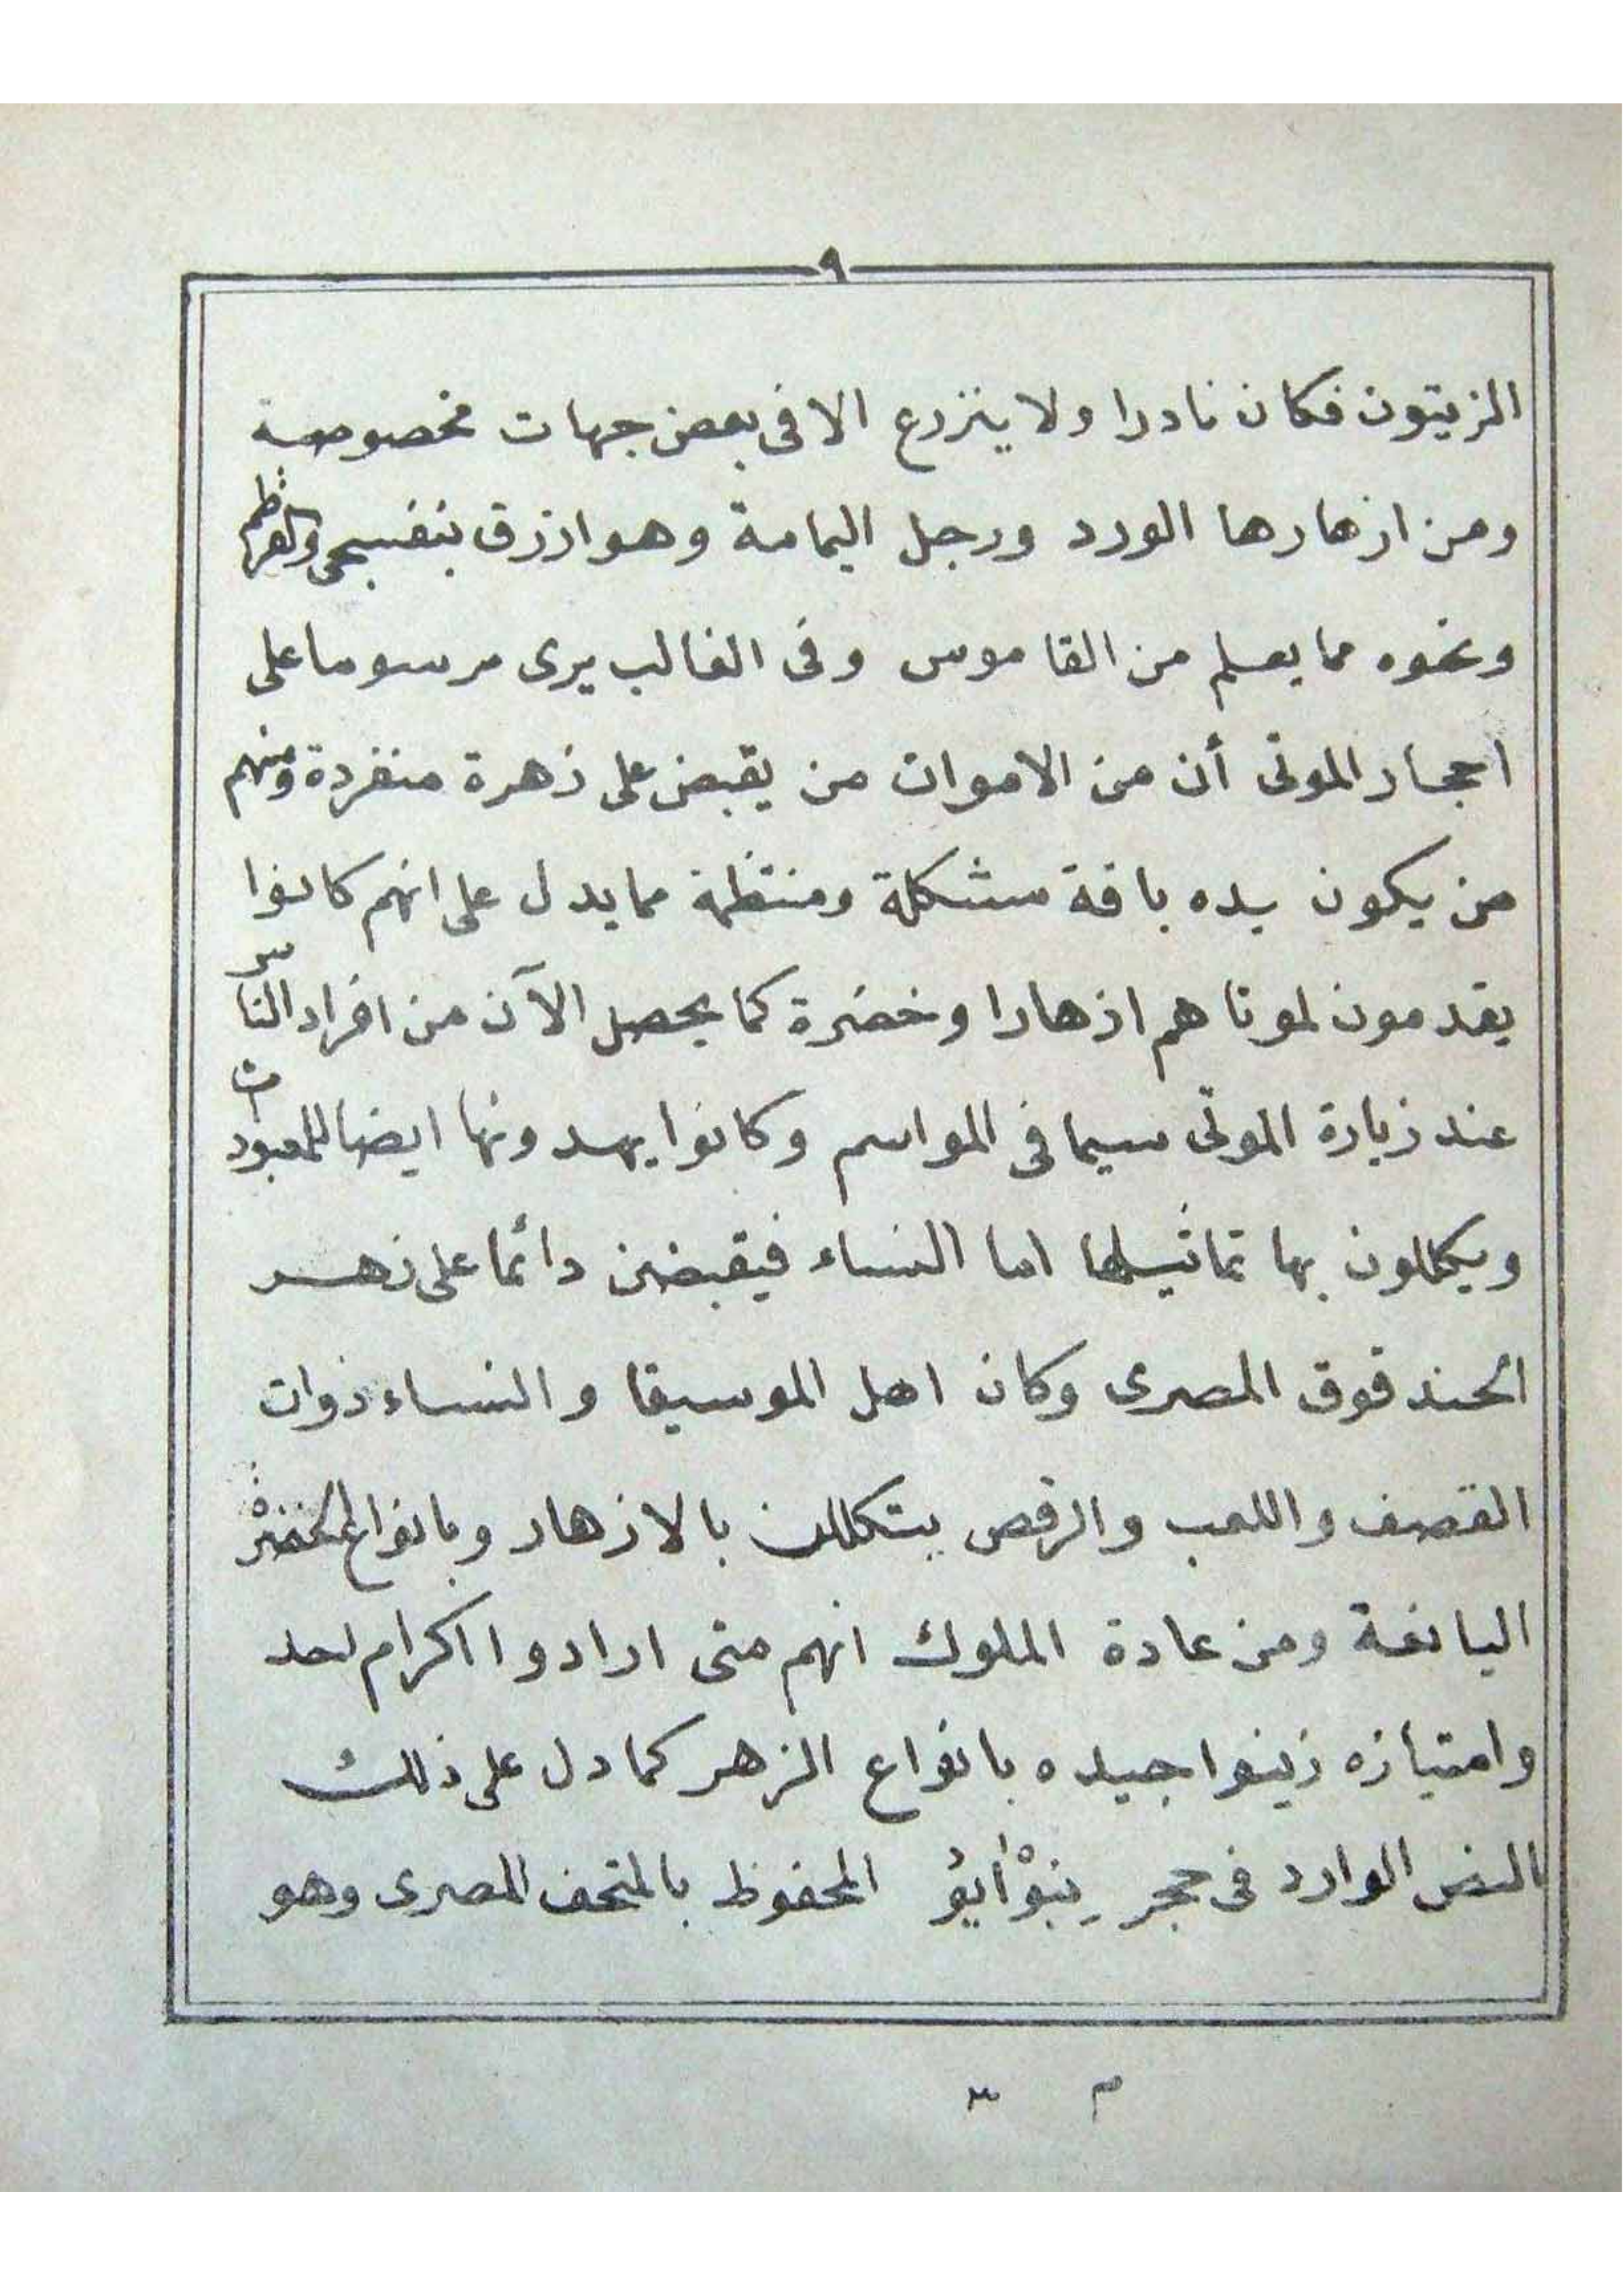 ٩
الزيتون فكان نادرا ولا ينزرع الا فى بعض جهات مخصوصة
ومن ازهارها الورد ورجل اليمامة وهو ازرق بنفسجى
ونحوه مما يعلم من القاموس وفى الغالب يرى مرسوما على
احجار الموتى أن من الاموات من يقبض على زهرة منفردة ومنهم
من يكون بيده باقة مشكلة ومنتظمة مما يدل على انهم كانوا
يقدمون لموتاهم ازهارا وخضرة كما يحصل الآن من افراد الناس
عند زيارة الموتى سيما فى المواسم وكانوا يهدونها ايضا للمعبودات
ويكللون بها تماثيلها اما النساء فيقبضن دائما على زهر
الحندقوق المصرى وكان اهل الموسيقا والنساء ذوات
القصف واللعب والرقص يتكللن بالازهار وبانواع الخضرة
اليانعة ومن عادة الملوك انهم متى ارادوا اكرام احد
وامتيازه زينوا جيده بانواع الزهر كما دل على ذلك
النص الوارد فى حجر المحفوظ بالمتحف المصرى وهو
م ٣